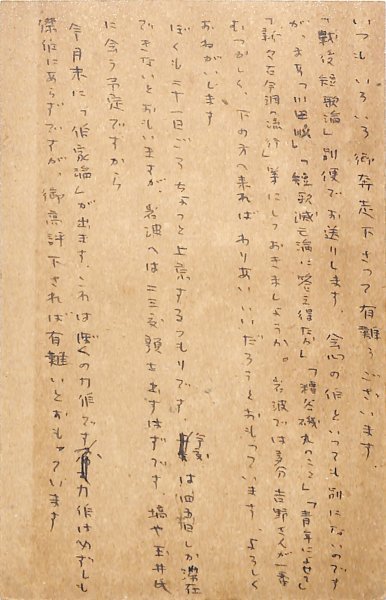 いつもいろいろ御奔走下さって有難うございます
「戦後短歌論」別便でお送りします、会心の作といっても別にないのです
が、まあ「川田順」「短歌滅亡論に答え得たか」「糟谷磯丸のこと」「青年によせて」
「新々古今調の流行」等にしておきましょうか。岩波では多分吉野さんが一番
むつかしく、下の方へ来ればわりあいいいだろうとおもっています、よろしく
おねがいします
ぼくも二十一日ごろちょっと上京するつもりです、今度は四五日しか滞在
できないとおもいますが、岩波へは二三度顔を出すはずです、塙や玉井氏
に会う予定ですから
今月末に「作家論」が出ます、これはぼくの力作です、力作は必ずしも
傑作にあらずですが、御高評下されば有難いとおもっています